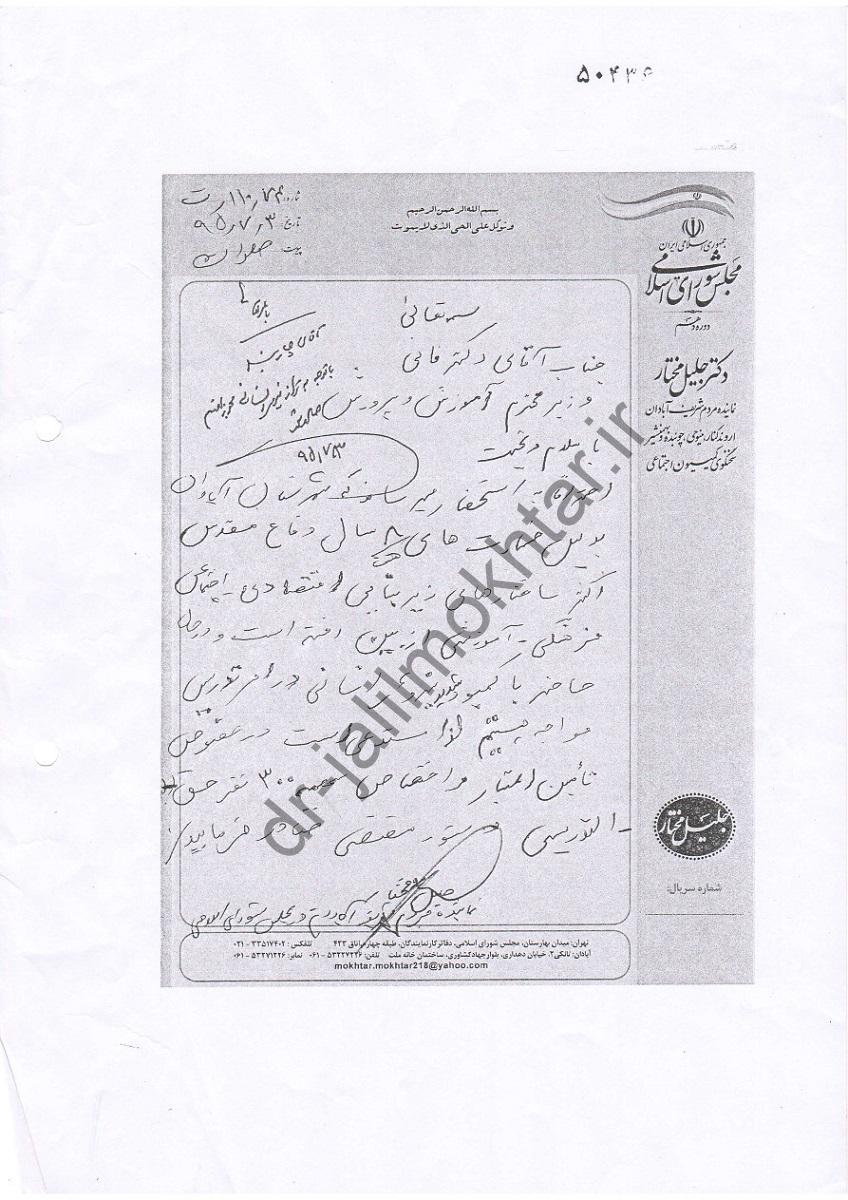 ۵۰۴۳۶
بسم الله الرحمن الرحیم
و توکل علی الحی الذی لایموت
شماره: ۱۱۰٫۷۴ رت
تاریخ: ۹۵٫۷٫۳
پیوست:
جمهوری اسلامی ایران
مجلس شورای اسلامی
دوره دهم
دکتر جلیل مختار
نماینده مردم شریف آبادان
اروندکنار، مینوحی، چوئبده و بهمنشیر
سخنگوی کمیسیون اجتماعی
بسمه تعالی
جناب آقای دکتر فانی
وزیر محترم آموزش و پرورش
با سلام و تحیت
آقای
با توجه به تراز نیروی انسانی
۹۵٫۷٫۳
احتراماً به استحضار میرساند که شهرستان آبادان
بدلیل خسارت های ۸ سال دفاع مقدس
اکثر ساختارهای زیربنایی اقتصادی - اجتماعی
فرهنگی - آموزشی از بین رفته است و در حال
حاضر با کمبود شدید نیروی انسانی در امر تدریس
مواجه هستیم لذا مستدعی است در خصوص
تأمین اعتبار و اختصاص سهمیه ۳۰۰ نفر حق
- التدریس دستور مقتضی صادر فرمایید
جلیل مختار
نماینده مردم شریف آبادان در مجلس شورای اسلامی
جلیل مختار
شماره سریال:
تهران: میدان بهارستان، مجلس شورای اسلامی، دفاتر کار نمایندگان، طبقه چهارم، اتاق ۴۲۳ تلفکس: ۳۳۵۱۷۴۰۲ - ۰۲۱
آبادان: تانکی۲، خیابان دهداری، بلوار جهاد کشاورزی، ساختمان خانه ملت تلفن: ۵۳۲۲۷۲۲۶ - ۰۶۱ نمابر: ۵۳۲۷۱۲۲۶ - ۰۶۱
mokhtar.mokhtar218@yahoo.com
dr-jalilmokhtar.ir